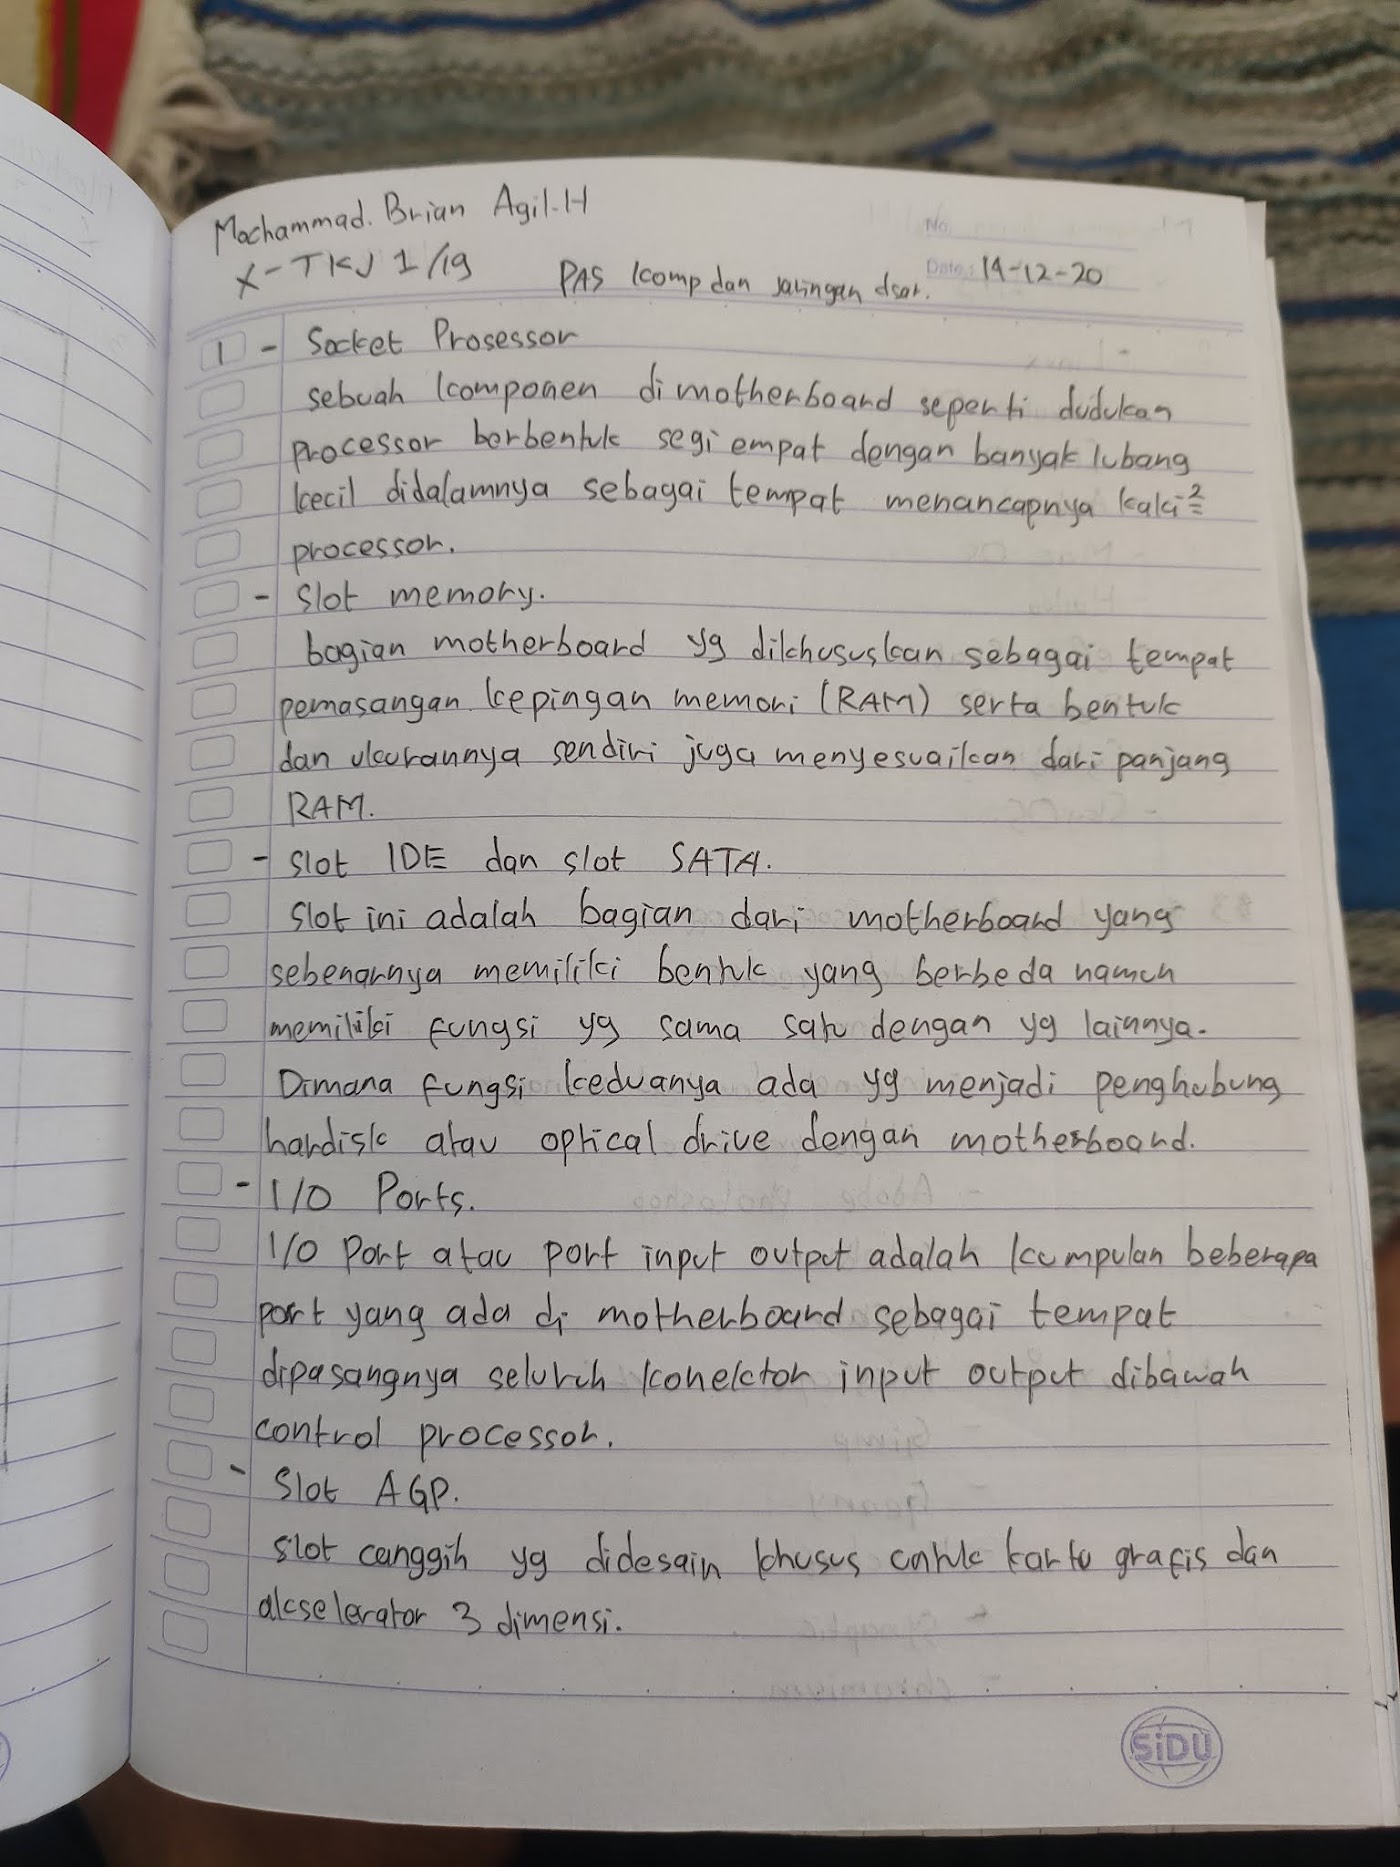 Mochammad. Brian Agil. H
X-TKJ 1/19
PAS komp dan jaringan dsar.
No.
Date: 14-12-20
1 - Socket Prosessor
sebuah komponen di motherboard seperti dudukan
processor berbentuk segi empat dengan banyak lubang
kecil didalamnya sebagai tempat menancapnya kaki²
processor.
- Slot memory.
bagian motherboard yg dikhususkan sebagai tempat
pemasangan kepingan memori (RAM) serta bentuk
dan ukurannya sendiri juga menyesuaikan dari panjang
RAM.
- Slot IDE dan slot SATA.
Slot ini adalah bagian dari motherboard yang
sebenarnya memiliki bentuk yang berbeda namun
memiliki fungsi yg sama satu dengan yg lainnya.
Dimana fungsi keduanya ada yg menjadi penghubung
hardisk atau optical drive dengan motherboard.
- I/O Ports.
I/O Port atau port input output adalah kumpulan beberapa
port yang ada di motherboard sebagai tempat
dipasangnya seluruh konektor input output dibawah
control processor.
- Slot AGP.
Slot canggih yg didesain khusus untuk kartu grafis dan
akselerator 3 dimensi.
SiDU